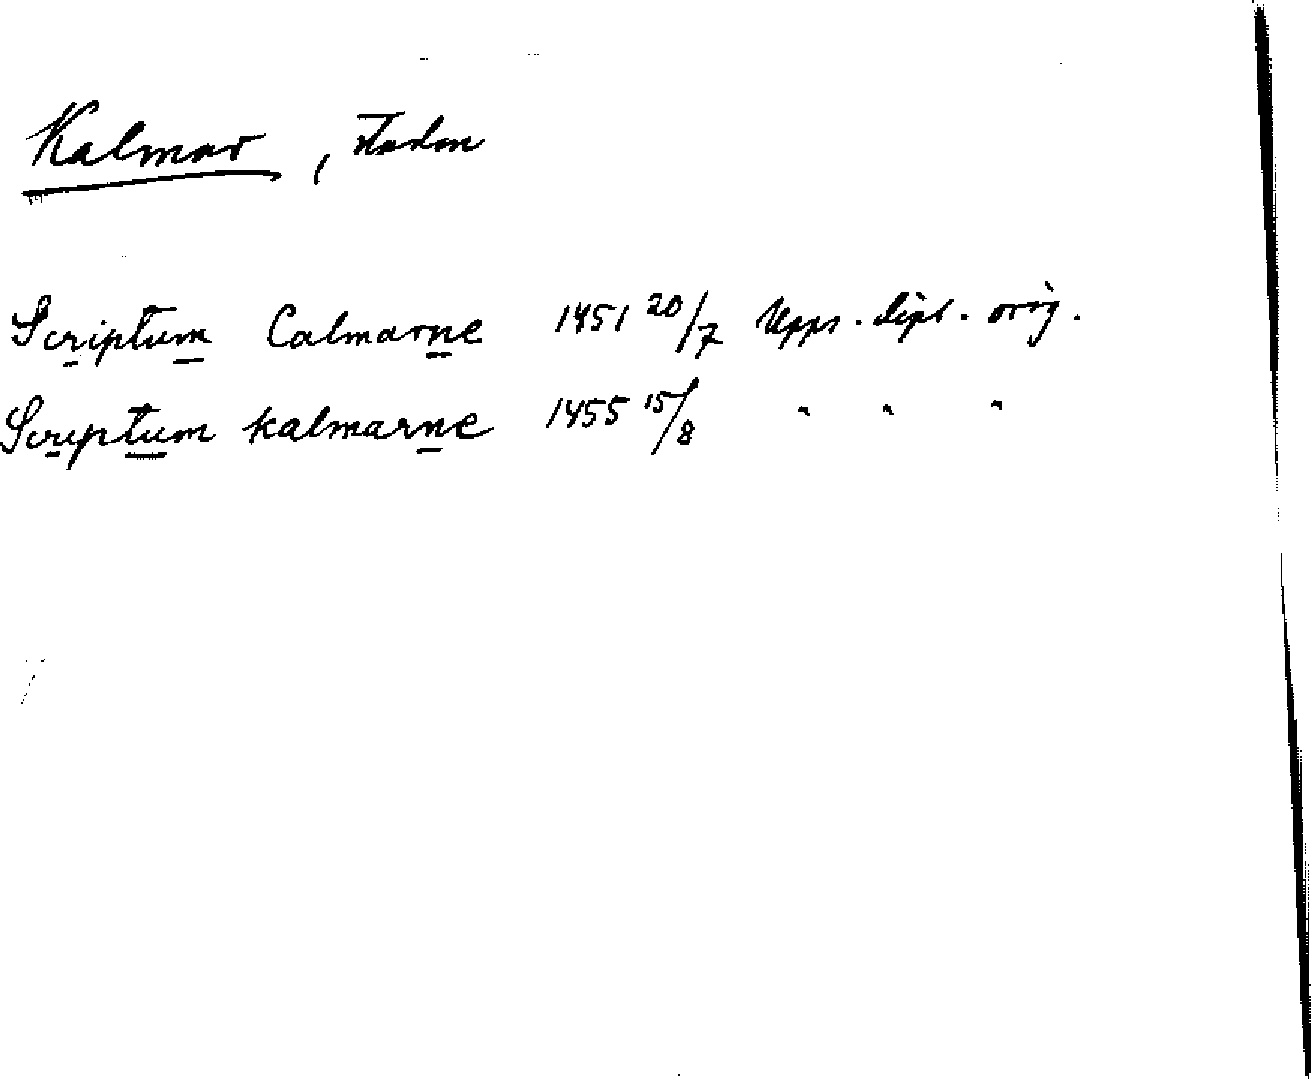 Kalmar, staden
Scriptum Calmarne 1451 20/7 Upps. dipl. orig.
Scriptum kalmarne 1455 15/8 " " "